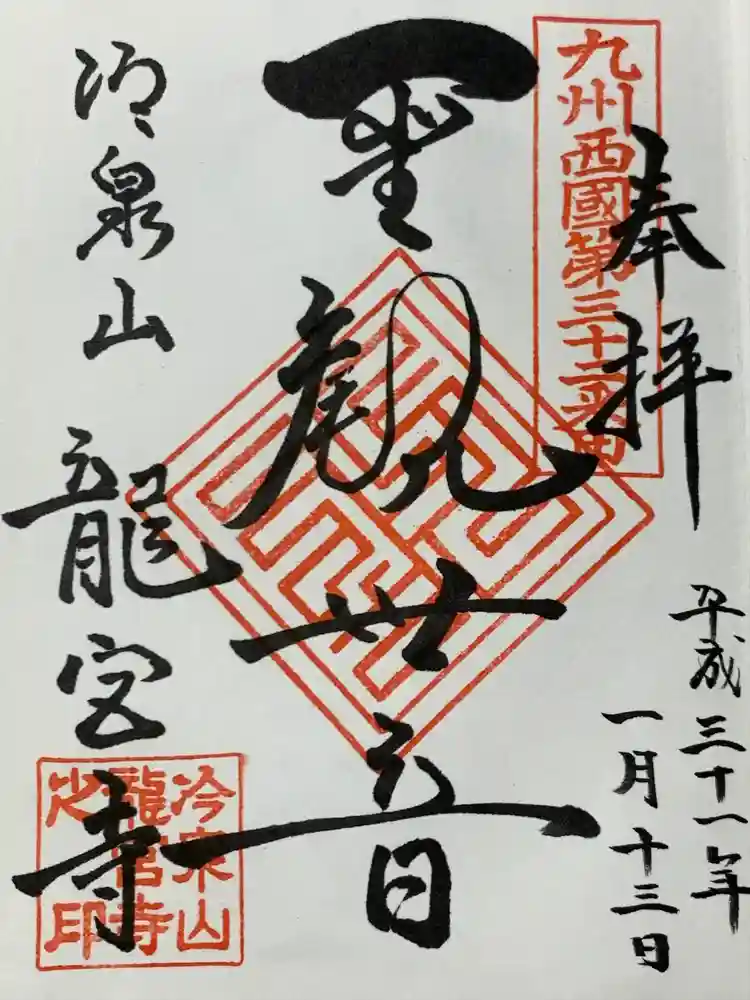 九州西國第三十二番
奉拝
平成三十一年
一月十三日
聖観世音
冷泉山
龍宮寺
冷泉山
龍宮寺
之印